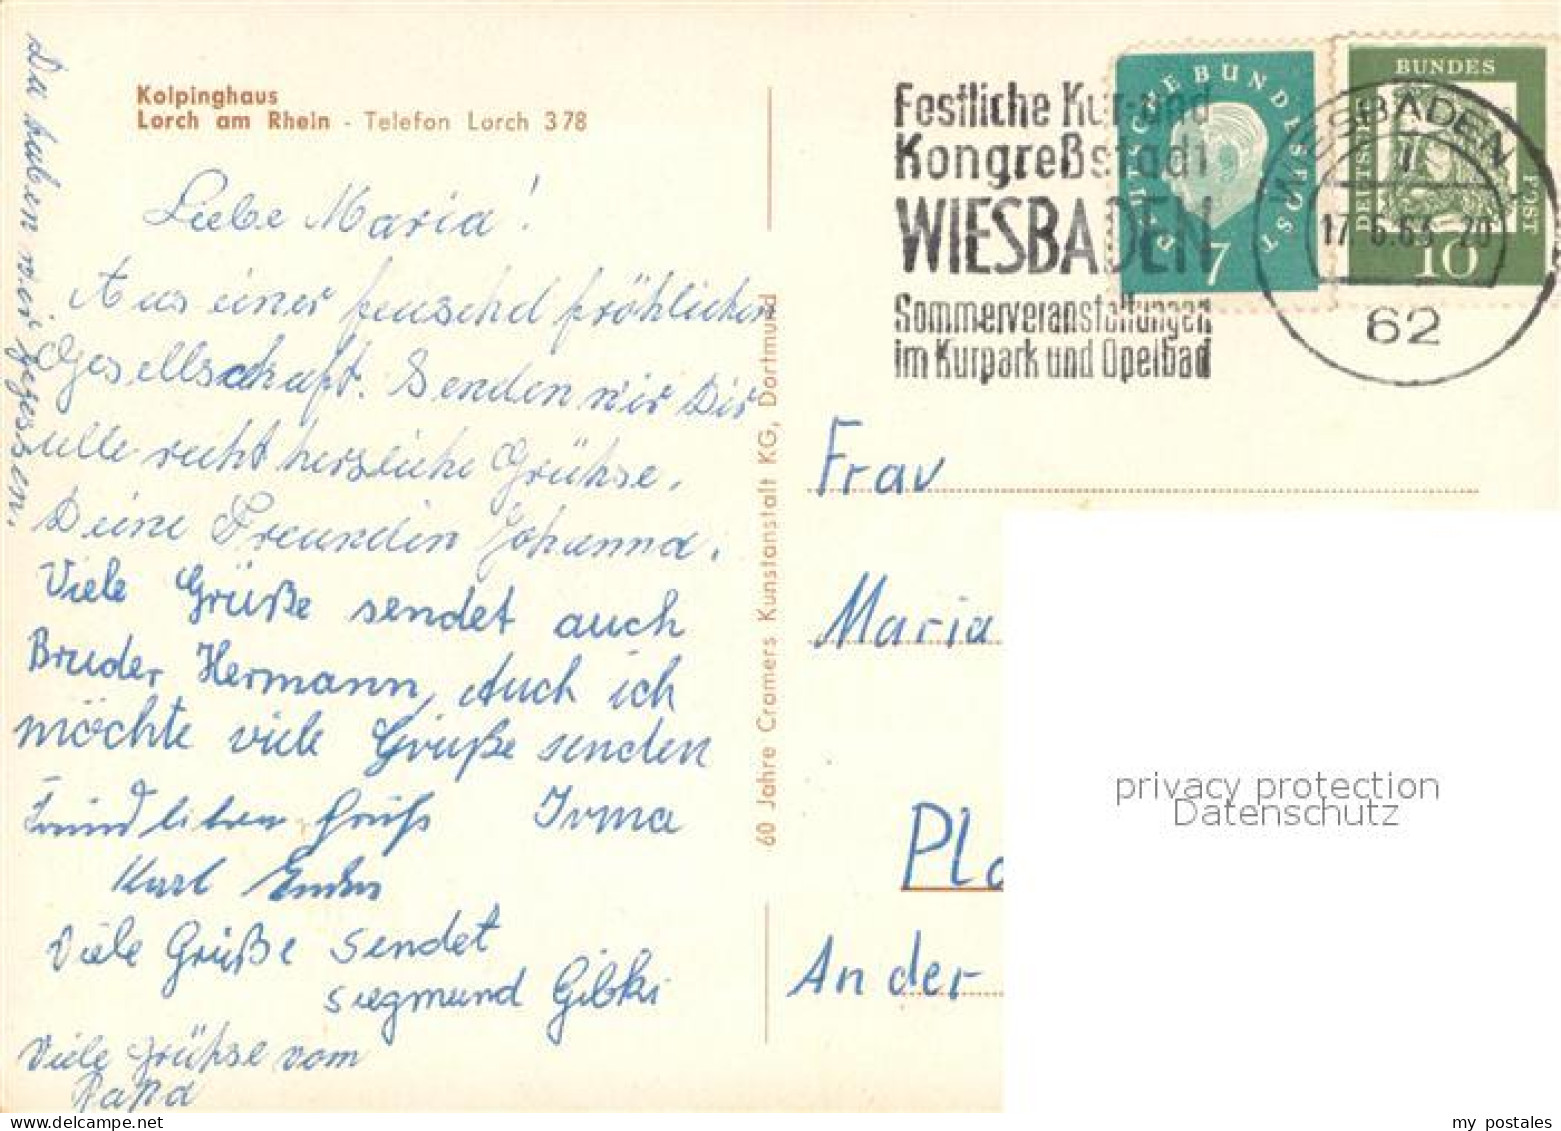 Kolpinghaus
Lorch am Rhein - Telefon Lorch 378
Liebe Maria!
Aus einer feuschd fröhlichen
Gesellschaft. Senden wir Dir
alle recht herzliche Grühse.
Deine Freundin Johanna.
Viele Grüße sendet auch
Bruder Hermann, Auch ich
möchte viele Grüße senden
Irma
Gruß
Karl
Viele Grüße sendet
Siegmund Gibki
Viele Grühse vom
Papa
Da haben wir gegessen.
60 Jahre Cramers Kunstanstalt KG, Dortmund
Festliche Kur- und
Kongreßstadt
WIESBADEN
Sommerveranstaltungen
im Kurpark und Opelbad
DEUTSCHE BUNDESPOST
7
DEUTSCHE
BUNDES
POST
10
WIESBADEN
17.6.63 20
62
Frau
Maria
Pla
An der
privacy protection
Datenschutz
my postales